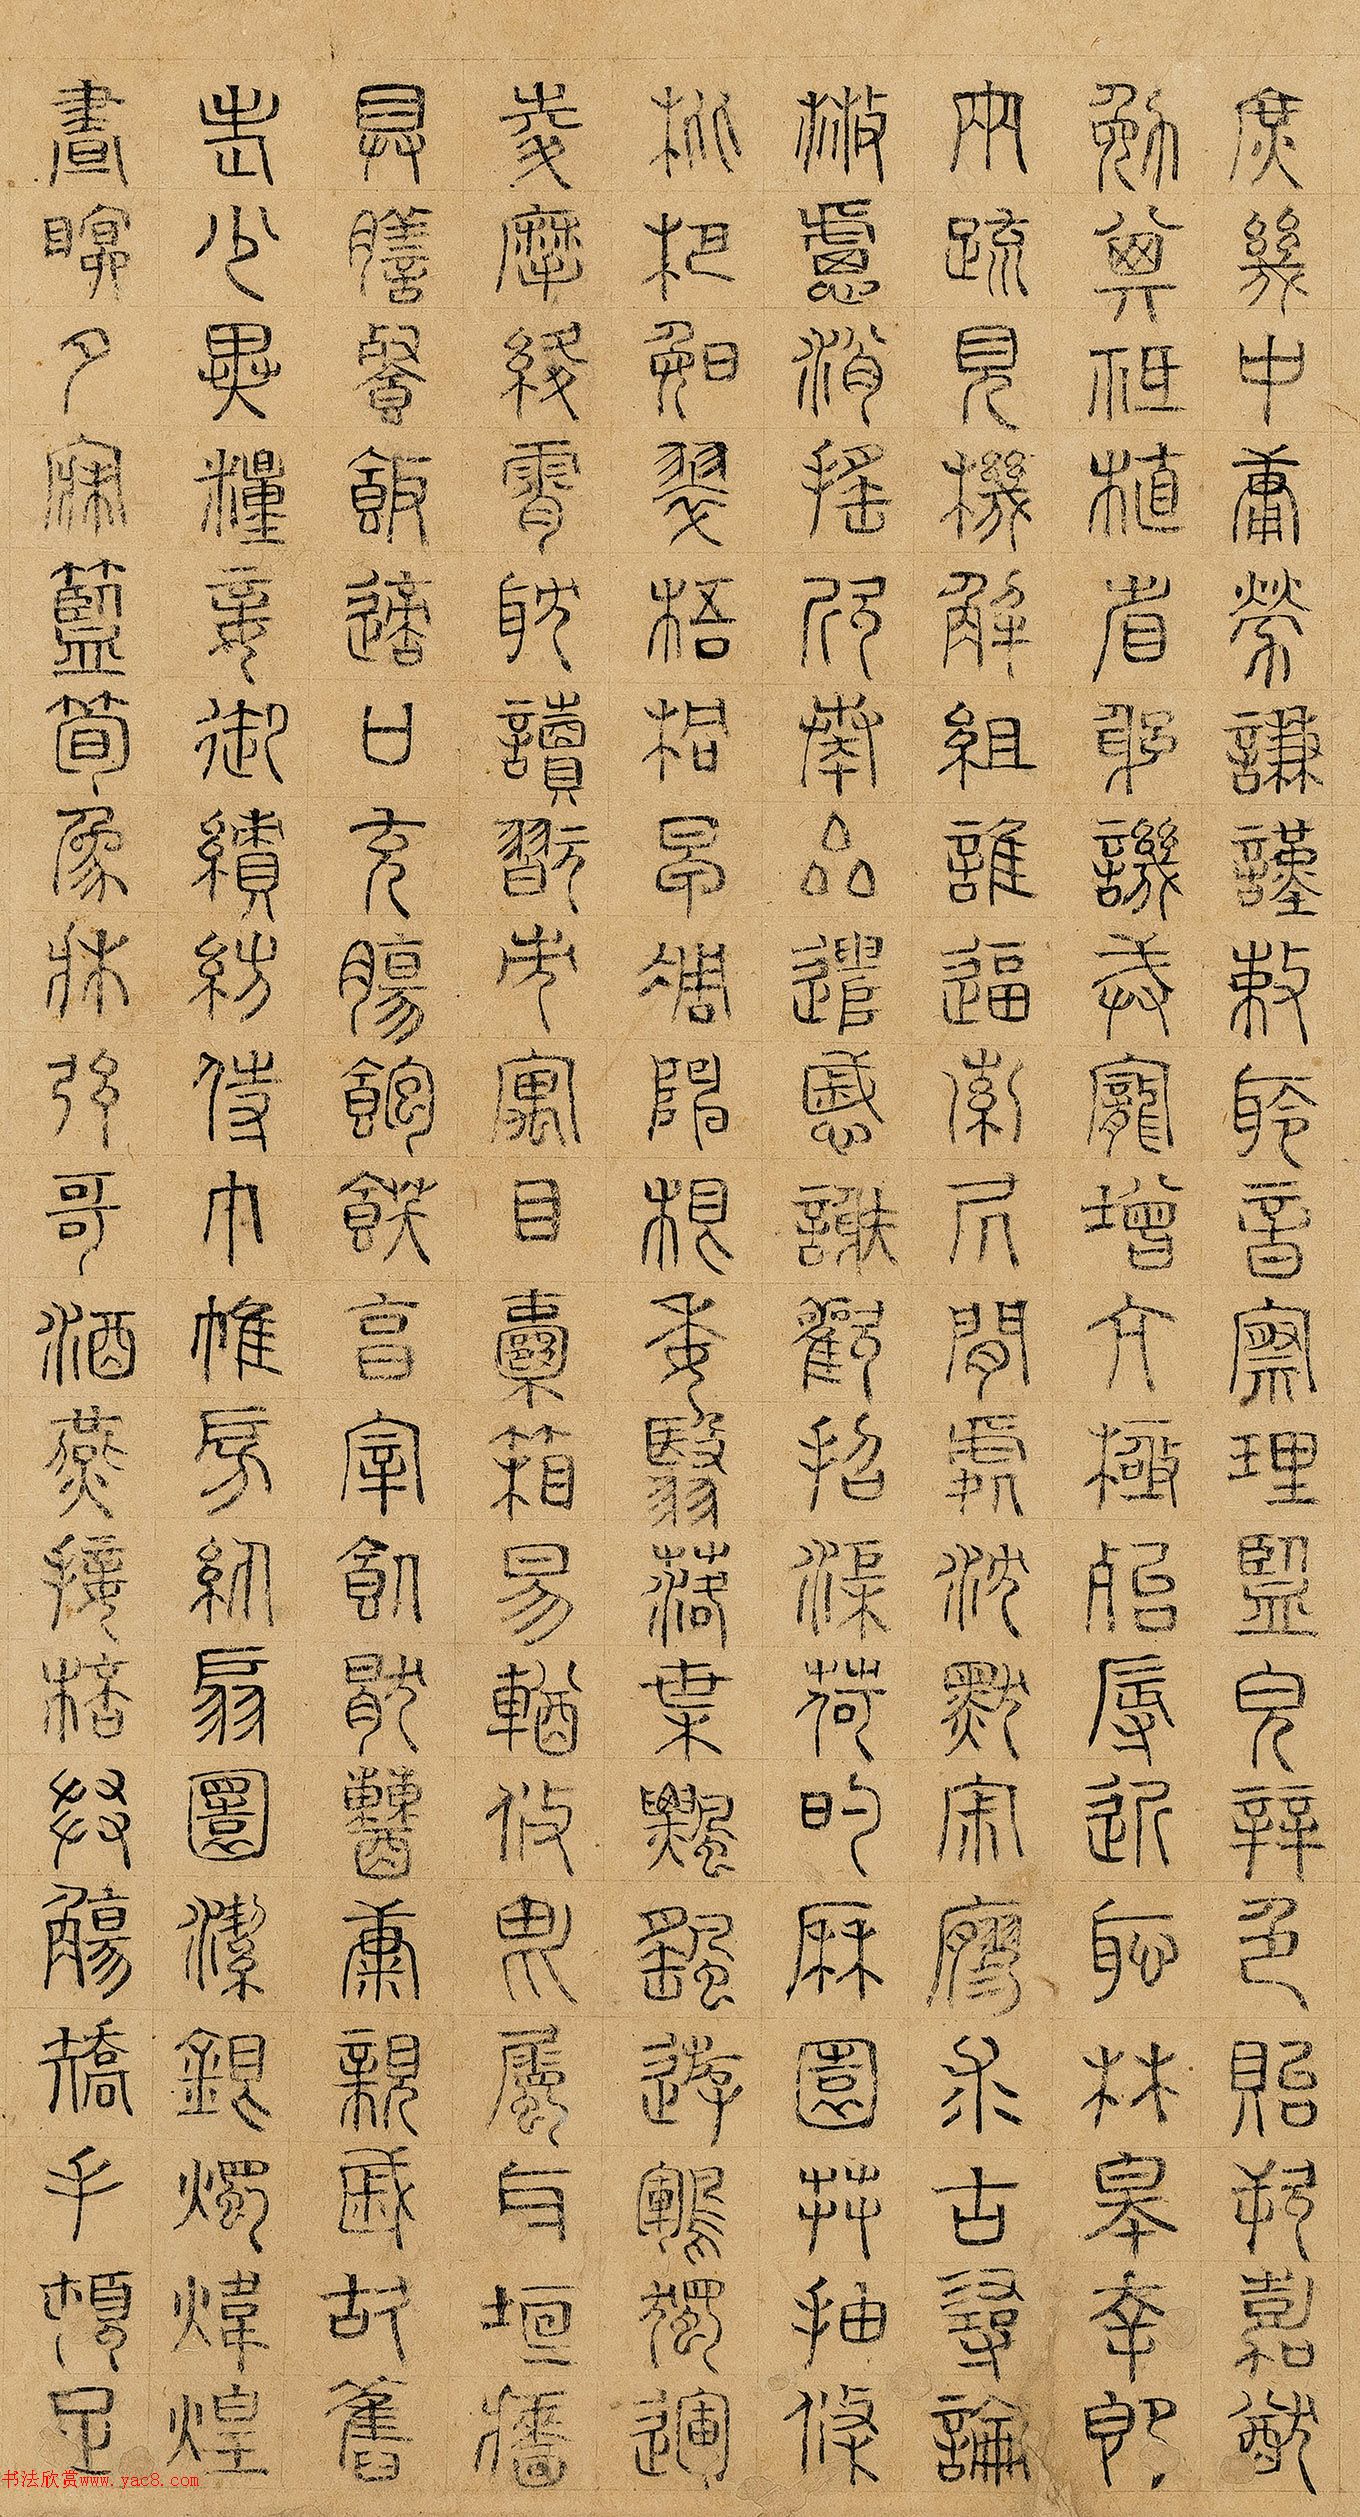 庶幾中庸勞謙謹敕聆音察理監皃辡色貽厥嘉猷
勉其祗植省躬譏誡寵增亢極殆辱近恥林皋幸即
兩疏見機解組誰逼索居閒處沈默寂廖求古尋論
散慮消搖欣奏品遣慼謝歡招渠荷的厤園莽抽條
枇杷晚翠梧桐早凋陳根委翳落葉飄颻遊鶤獨運
凌摩絳霄耽讀翫市寓目囊箱易輶攸畏屬耳垣牆
具膳餐飯適口充腸飽飫亯宰飢猒糟康親戚故舊
老少異糧妾御績紡侍巾帷房紈扇圜潔銀燭煒煌
晝瞑夕寐籃筍象牀弦哥酒燕接桮舉觴矯手頓足
书法欣赏www.yac8.com